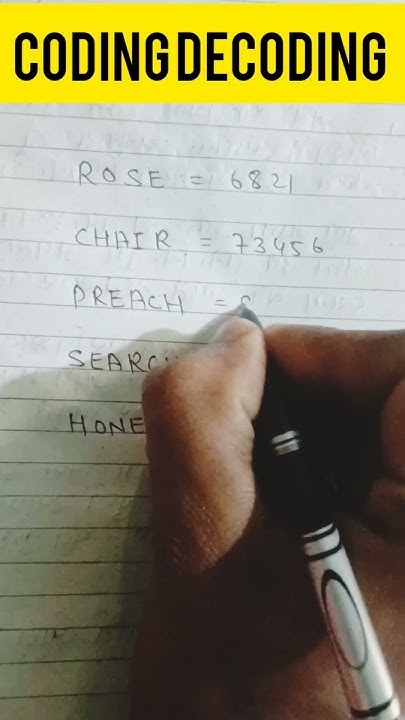 CODING DECODING
ROSE = 6821
CHAIR = 73456
PREACH =
SEARC
HONE